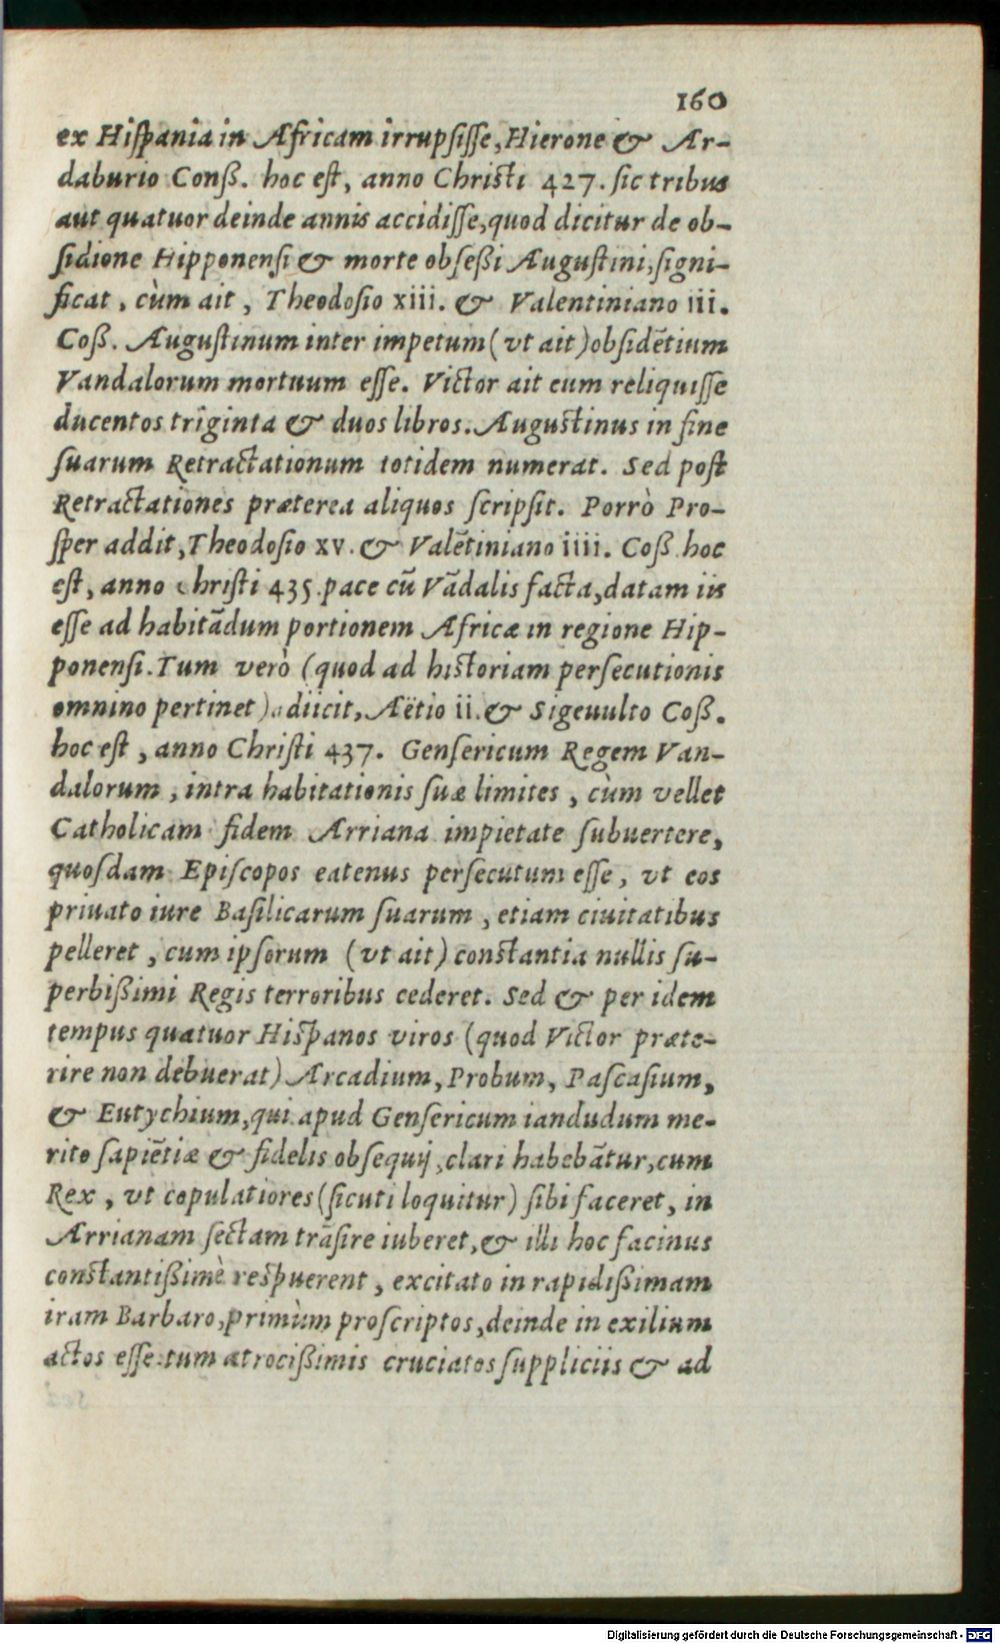 160
ex Hiſpania in Africam irrupſiſſe, Hierone & Ar-
daburio Conß. hoc eſt, anno Chriſti 427. ſic tribus
aut quatuor deinde annis accidiſſe, quod dicitur de ob-
ſidione Hipponenſi & morte obſeßi Auguſtini, ſigni-
ficat, cùm ait, Theodoſio xiii. & Valentiniano iii.
Coß. Auguſtinum inter impetum (vt ait) obſidētium
Vandalorum mortuum eſſe. Victor ait eum reliquiſſe
ducentos triginta & duos libros. Auguſtinus in fine
ſuarum Retractationum totidem numerat. Sed poſt
Retractationes præterea aliquos ſcripſit. Porrò Pro-
ſper addit, Theodoſio xv. & Valētiniano iiii. Coß. hoc
eſt, anno Chriſti 435. pace cū Vādalis facta, datam iis
eſſe ad habitādum portionem Africæ in regione Hip-
ponenſi. Tum verò (quod ad hiſtoriam perſecutionis
omnino pertinet) adiicit, Aëtio ii. & Sigeuulto Coß.
hoc eſt, anno Chriſti 437. Genſericum Regem Van-
dalorum, intra habitationis ſuæ limites, cùm vellet
Catholicam fidem Arriana impietate ſubuertere,
quoſdam Epiſcopos eatenus perſecutum eſſe, vt eos
priuato iure Baſilicarum ſuarum, etiam ciuitatibus
pelleret, cum ipſorum (vt ait) conſtantia nullis ſu-
perbißimi Regis terroribus cederet. Sed & per idem
tempus quatuor Hiſpanos viros (quod Victor præte-
rire non debuerat) Arcadium, Probum, Paſcaſium,
& Eutychium, qui apud Genſericum iandudum me-
rito ſapiētiæ & fidelis obſequij, clari habebātur, cum
Rex, vt copulatiores (ſicuti loquitur) ſibi faceret, in
Arrianam ſectam trāſire iuberet, & illi hoc facinus
conſtantißimè reſpuerent, excitato in rapidißimam
iram Barbaro, primùm proſcriptos, deinde in exilium
actos eſſe. tum atrocißimis cruciatos ſuppliciis & ad
Digitalisierung gefördert durch die Deutsche Forschungsgemeinschaft - DFG